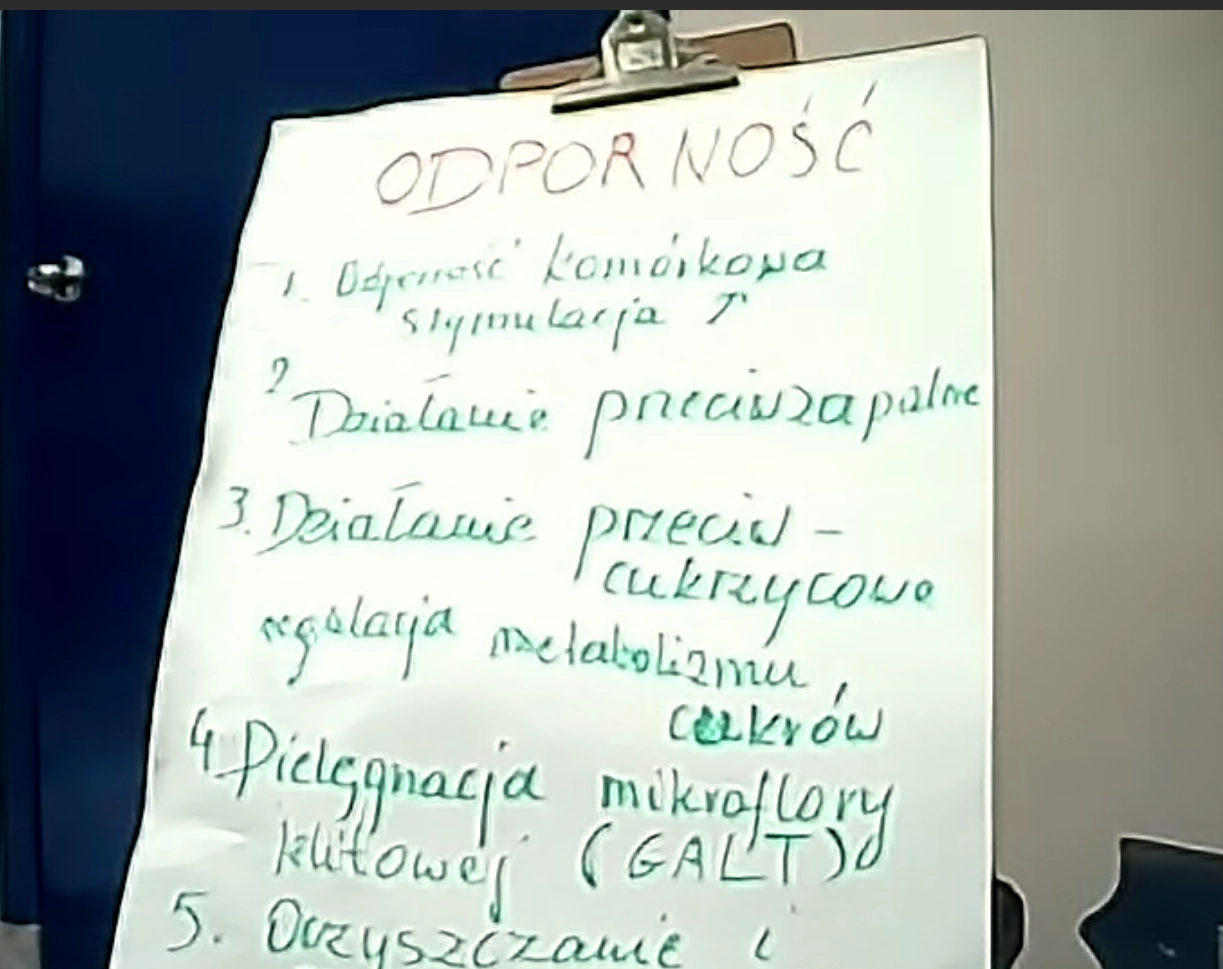 ODPORNOŚĆ
1. Odporność komórkowa
stymulacja ↑
2 Działanie przeciwzapalne
3. Działanie przeciw -
cukrzycowe
regulacja metabolizmu,
cukrów
4 Pielęgnacja mikroflory
(GALT)
5. Oczyszczanie i